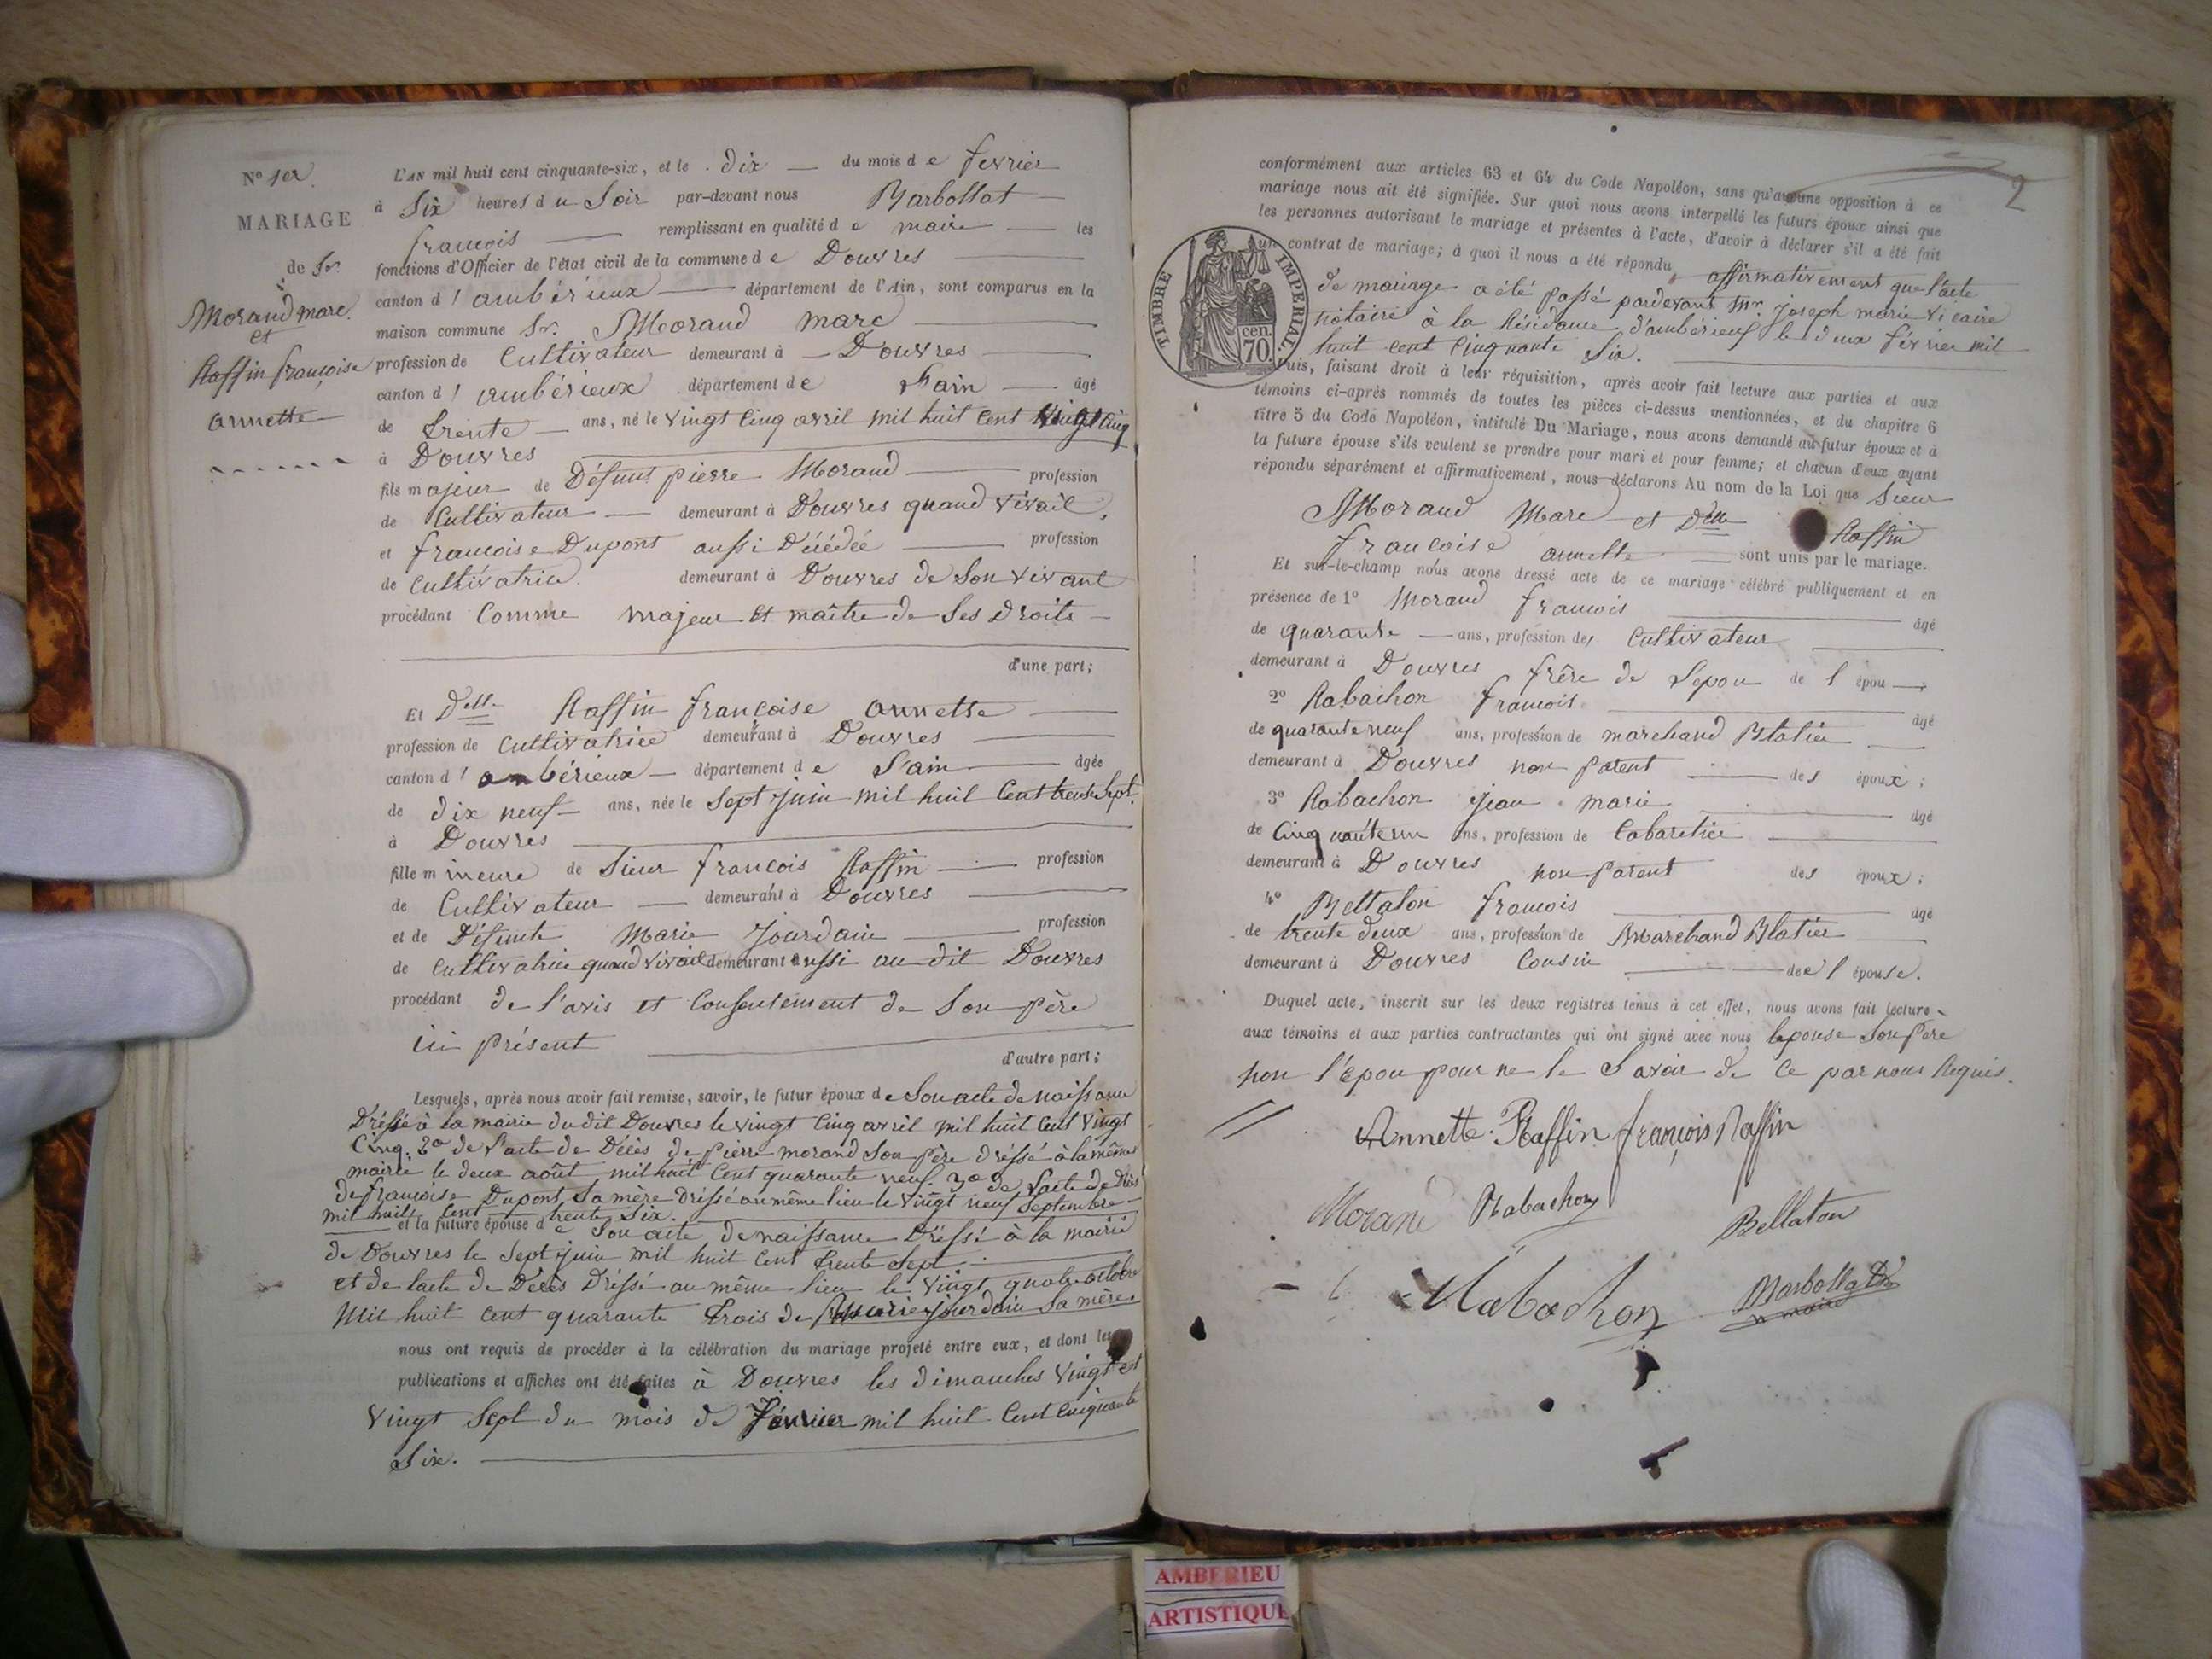 N° 1er.
MARIAGE
de Sr.
Morand marc.
et
Raffin françoise
annette
L'AN mil huit cent cinquante-six, et le dix du mois de fevrier
à Six heures du Soir par-devant nous Barbollat
françois remplissant en qualité de maire les
fonctions d'Officier de l'état civil de la commune de Douvres
canton d'ambérieux département de l'Ain, sont comparus en la
maison commune Sr. Morand marc
profession de Cultivateur demeurant à Douvres
canton d'ambérieux département de l'ain âgé
de trente ans, né le vingt cinq avril mil huit cent vingt cinq
à Douvres
fils majeur de Défunt pierre Morand profession
de Cultivateur demeurant à Douvres quand vivait,
et francoise Dupont aussi Décédée profession
de Cultivatrice. demeurant à Douvres de Son vivant
procédant Comme majeur et maître de Ses Droits
d'une part;
Et Delle Raffin francoise annette
profession de Cultivatrice demeurant à Douvres
canton d'ambérieux département de l'ain âgée
de dix neuf ans, née le Sept juin mil huit Cent trente Sept.
à Douvres
fille mineure de Sieur francois Raffin profession
de Cultivateur demeurant à Douvres
et de Défunte Marie Jourdain profession
de Cultivatrice quand vivait demeurant aussi au dit Douvres
procédant de l'avis et Consentement de Son père
ici présent
d'autre part;
Lesquels, après nous avoir fait remise, savoir, le futur époux de Son acte de naissance
Dréssé à la mairie du dit Douvres le vingt Cinq avril mil huit Cent vingt
Cinq. 2° de l'acte de Décès de pierre morand Son père dréssé à la même
mairie le deux août mil huit Cent quarante neuf. 3° de l'acte de Décès
de francoise Dupont Sa mère dréssé au même lieu le vingt neuf Septembre
mil huit Cent trente Six.
et la future épouse de Son acte de naissance Dréssé à la mairie
de Douvres le Sept juin mil huit Cent trente Sept
et de l'acte de Décès Dréssé au même lieu le vingt quatre octobre
Mil huit Cent quarante trois de marie jourdain Sa mère.
nous ont requis de procéder à la célébration du mariage projeté entre eux, et dont les
publications et affiches ont été faites à Douvres les dimanches vingt et
vingt Sept du mois de Janvier mil huit Cent Cinquante
Six.
2
conformément aux articles 63 et 64 du Code Napoléon, sans qu'aucune opposition à ce
mariage nous ait été signifiée. Sur quoi nous avons interpellé les futurs époux ainsi que
les personnes autorisant le mariage et présentes à l'acte, d'avoir à déclarer s'il a été fait
un contrat de mariage; à quoi il nous a été répondu affirmativement que l'acte
de mariage a été passé pardevant Mr. Joseph marie Vicaire
notaire à la Résidance d'ambérieux le deux février mil
huit cent Cinquante Six.
TIMBRE IMPERIAL.
cen.
70.
Puis, faisant droit à leur réquisition, après avoir fait lecture aux parties et aux
témoins ci-après nommés de toutes les pièces ci-dessus mentionnées, et du chapitre 6
titre 5 du Code Napoléon, intitulé Du Mariage, nous avons demandé au futur époux et à
la future épouse s'ils veulent se prendre pour mari et pour femme; et chacun d'eux ayant
répondu séparément et affirmativement, nous déclarons Au nom de la Loi que Sieur
Morand Marc et Delle Raffin
francoise annette sont unis par le mariage.
Et sur-le-champ nous avons dressé acte de ce mariage célébré publiquement et en
présence de 1° Morand francois âgé
de quarante ans, profession de Cultivateur
demeurant à Douvres frère de l'epou de l épou
2° Rabachon francois. âgé
de quarante neuf ans, profession de marchand Blatier
demeurant à Douvres non parent des époux;
3° Rabachon jean marie âgé
de Cinquante un ans, profession de Cabaretier
demeurant à Douvres non parent des époux;
4° Bellaton francois âgé
de trente deux ans, profession de Marchand Blatier
demeurant à Douvres Cousin de l'épouse.
Duquel acte, inscrit sur les deux registres tenus à cet effet, nous avons fait lecture
aux témoins et aux parties contractantes qui ont signé avec nous lepouse Son Père
non l'épou pour ne le Savoir de Ce par nous Requis.
Annette Raffin françois Raffin
Morand Rabachon Bellaton
Rabachon Barbollat
maire
AMBERIEU
ARTISTIQUE